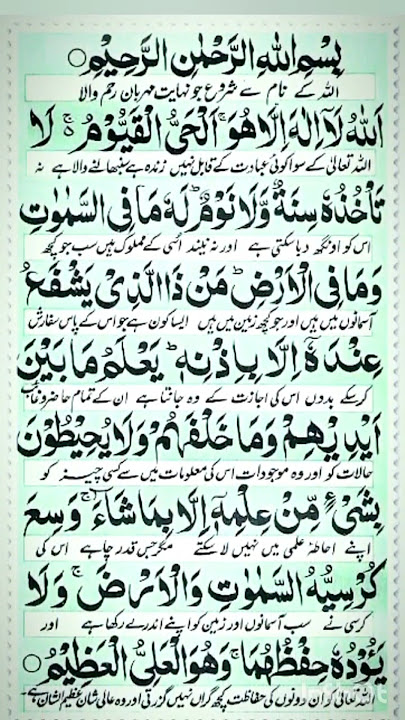 بِسْمِ اللهِ الرَّحْمٰنِ الرَّحِيْمِ ○
اللہ کے نام سے شروع جو نہایت مہربان رحم والا
اَللهُ لَآ اِلٰهَ اِلَّا هُوَ ۚ اَلْحَيُّ الْقَيُّوْمُ ۬ ۚ لَا
اللہ تعالیٰ کے سوا کوئی عبادت کے قابل نہیں زندہ ہے سنبھالنے والا ہے نہ
تَاْخُذُهٗ سِنَةٌ وَّلَا نَوْمٌ ؕ لَهٗ مَا فِي السَّمٰوٰتِ
اس کو اونگھ دبا سکتی ہے اور نہ نیند اسی کے مملوک ہیں سب جو کچھ
وَمَا فِي الْاَرْضِ ؕ مَنْ ذَا الَّذِيْ يَشْفَعُ
آسمانوں میں ہیں اور جو کچھ زمین میں ہیں ایسا کون ہے جو اس کے پاس سفارش
عِنْدَهٗٓ اِلَّا بِاِذْنِهٖ ؕ يَعْلَمُ مَا بَيْنَ
کر سکے بدوں اس کی اجازت کے وہ جانتا ہے ان کے تمام حاضر و غائب
اَيْدِيْهِمْ وَمَا خَلْفَهُمْ ۚ وَلَا يُحِيْطُوْنَ
حالات کو اور وہ موجودات اس کی معلومات میں سے کسی چیز کو
بِشَيْءٍ مِّنْ عِلْمِهٖٓ اِلَّا بِمَا شَآءَ ۚ وَسِعَ
اپنے احاطۂ علمی میں نہیں لا سکتے مگر جس قدر چاہے اس کی
كُرْسِيُّهُ السَّمٰوٰتِ وَالْاَرْضَ ۚ وَلَا
کرسی نے سب آسمانوں اور زمین کو اپنے اندر لے رکھا ہے اور
يَـُٔوْدُهٗ حِفْظُهُمَا ۚ وَهُوَ الْعَلِيُّ الْعَظِيْمُ ○
اللہ تعالیٰ کو ان دونوں کی حفاظت کچھ گراں نہیں گزرتی اور وہ عالی شان عظیم الشان ہے۔